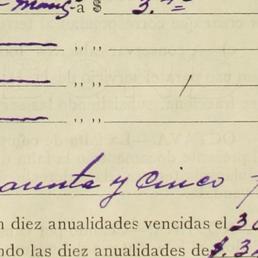 a $ 3.
" "
" "
" "
arenta y Cinco
n diez anualidades vencidas el 30
ndo las diez anualidades de $. 3